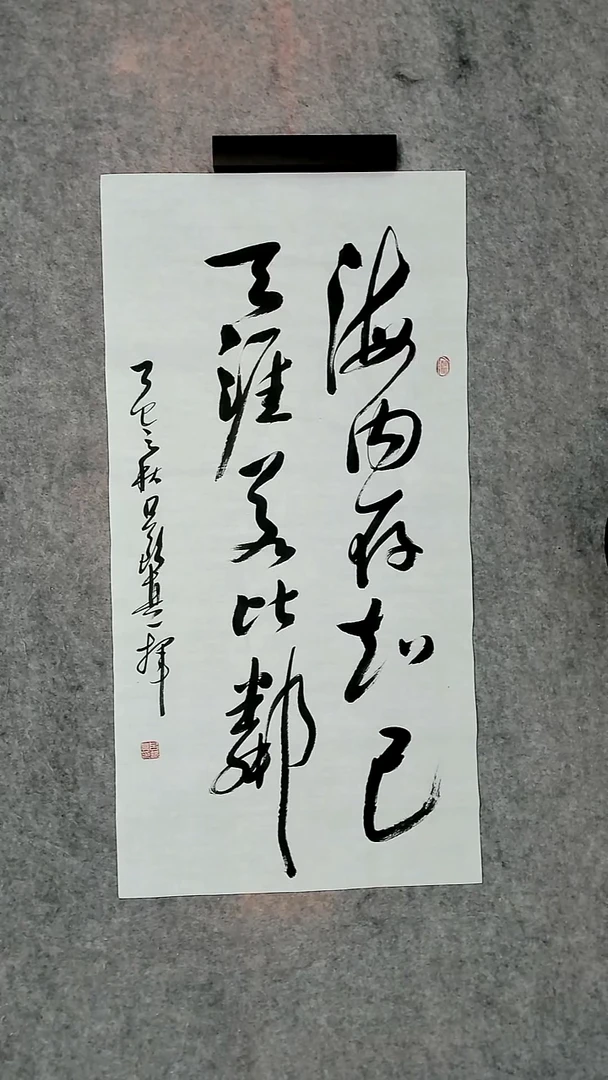 海内存知己
天涯若比邻
乙巳之秋